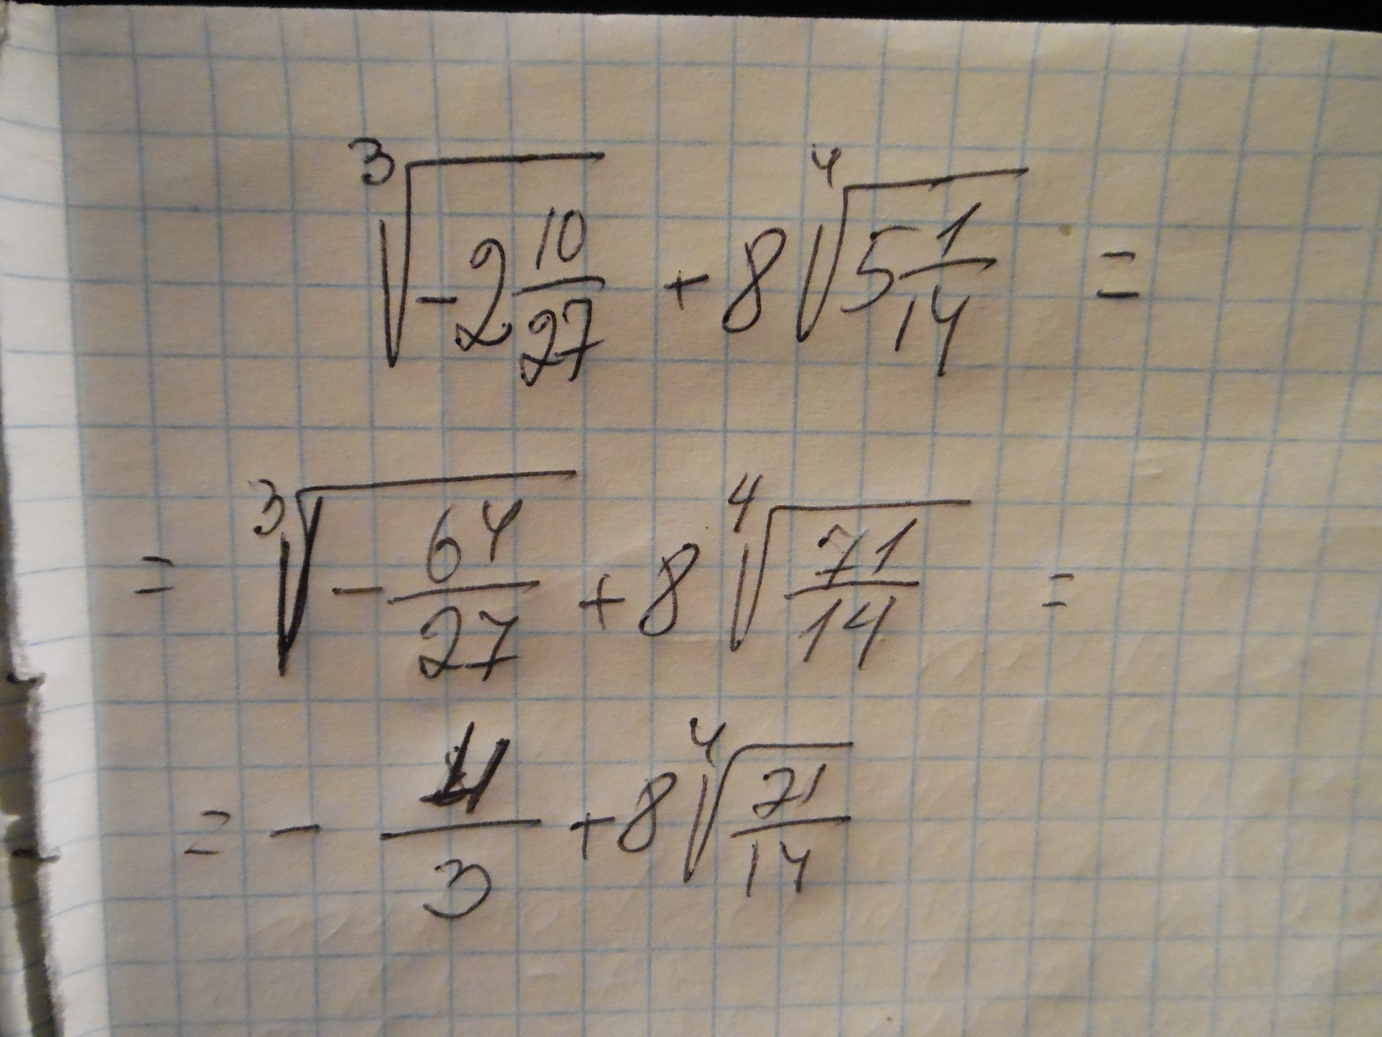 ∛(-2 10/27) + 8 ∜(5 1/14) =
= ∛(- 64/27) + 8 ∜(71/14) =
= - 4/3 + 8 ∜(71/14)